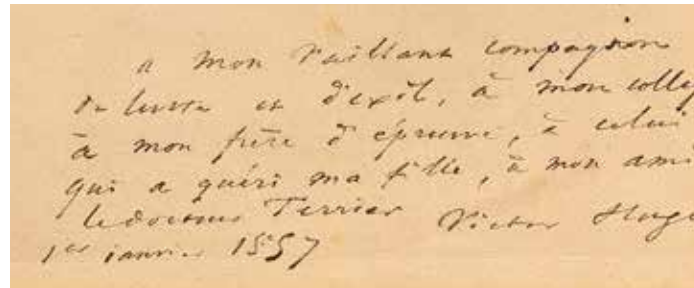 a mon vaillant compagnon
de lutte et d'exil, à mon colleg
à mon frère d'épreuve, à celui
qui a guéri ma fille, à mon ami
le docteur Terrier Victor Hugo
1er janvier 1857